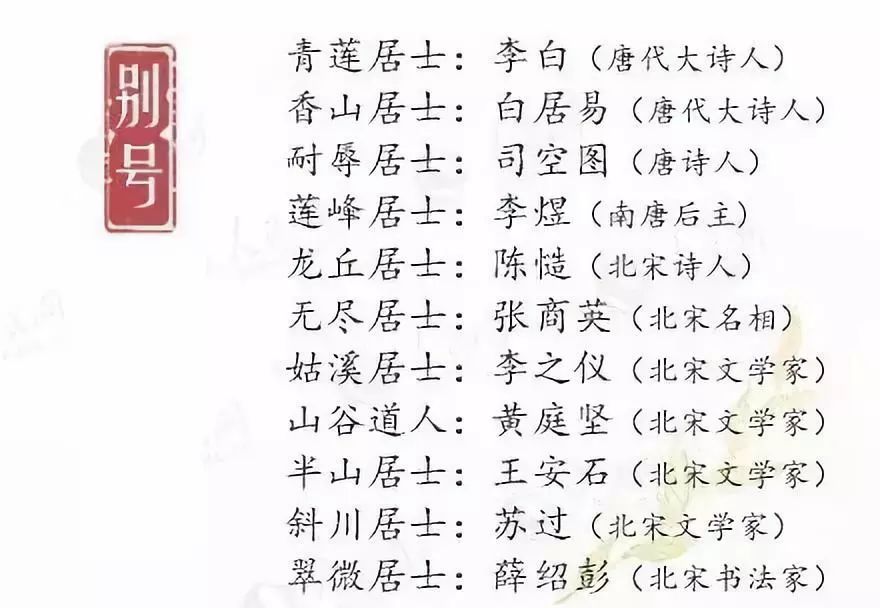 别号
青莲居士：李白（唐代大诗人）
香山居士：白居易（唐代大诗人）
耐辱居士：司空图（唐诗人）
莲峰居士：李煜（南唐后主）
龙丘居士：陈慥（北宋诗人）
无尽居士：张商英（北宋名相）
姑溪居士：李之仪（北宋文学家）
山谷道人：黄庭坚（北宋文学家）
半山居士：王安石（北宋文学家）
斜川居士：苏过（北宋文学家）
翠微居士：薛绍彭（北宋书法家）